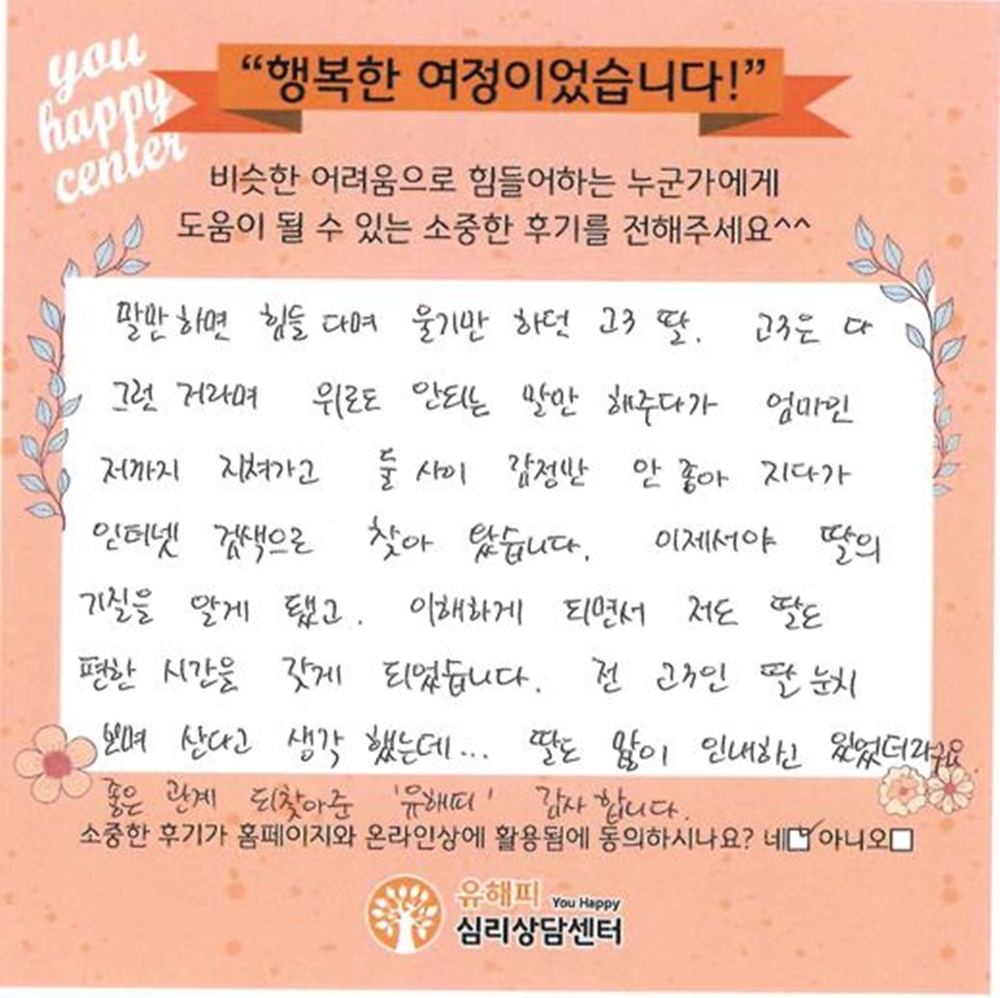 you
happy
center
“행복한 여정이었습니다!”
비슷한 어려움으로 힘들어하는 누군가에게
도움이 될 수 있는 소중한 후기를 전해주세요^^
말만하면 힘들다며 울기만 하던 고3 딸. 고3은 다
그런 거라며 위로도 안되는 말만 해주다가 엄마인
저까지 지쳐가고 둘 사이 감정만 안 좋아 지다가
인터넷 검색으로 찾아 왔습니다. 이제서야 딸의
기질을 알게 됐고. 이해하게 되면서 저도 딸도
편한 시간을 갖게 되었습니다. 전 고3인 딸 눈치
보며 산다고 생각 했는데... 딸도 많이 인내하고 있었더라구요
좋은 관계 되찾아준 '유해피' 감사합니다.
소중한 후기가 홈페이지와 온라인상에 활용됨에 동의하시나요? 네☑ 아니오□
유해피 You Happy
심리상담센터